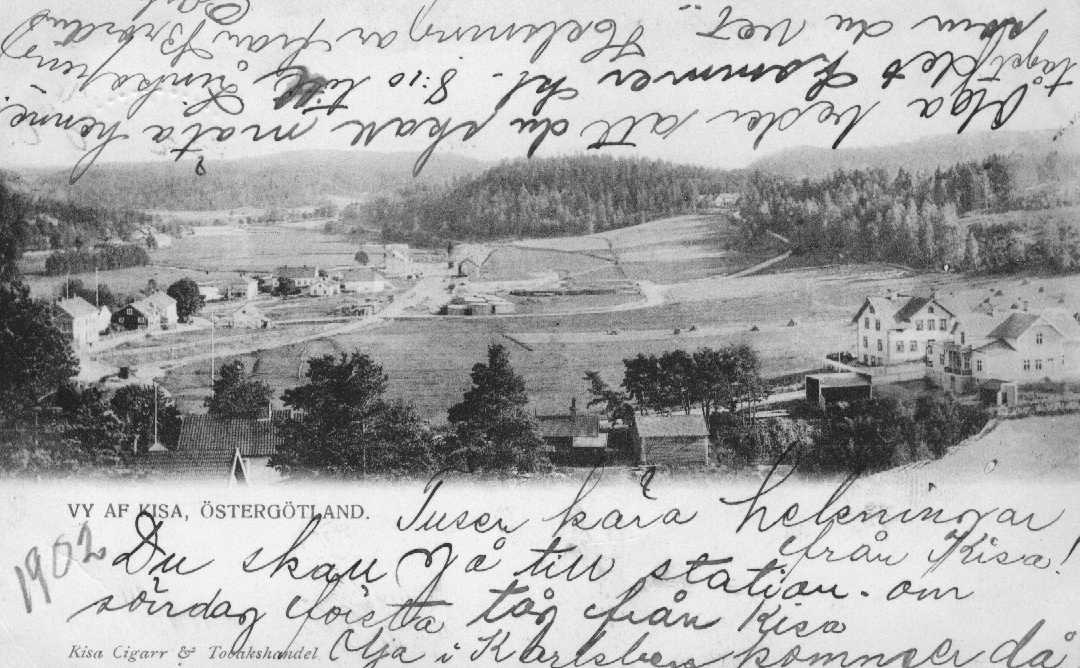 VY AF KISA, ÖSTERGÖTLAND.
1902
Tusen kära helsningar
från Kisa!
Du skall gå till station. om
söndag första tåg från Kisa
i kommer då
Kisa Cigarr & Tobakshandel
Olga beder att du skall möta henne.
tåget det kommer kl. 8:10 till Linköping
som du vet. Helsningar från Broder
Carl